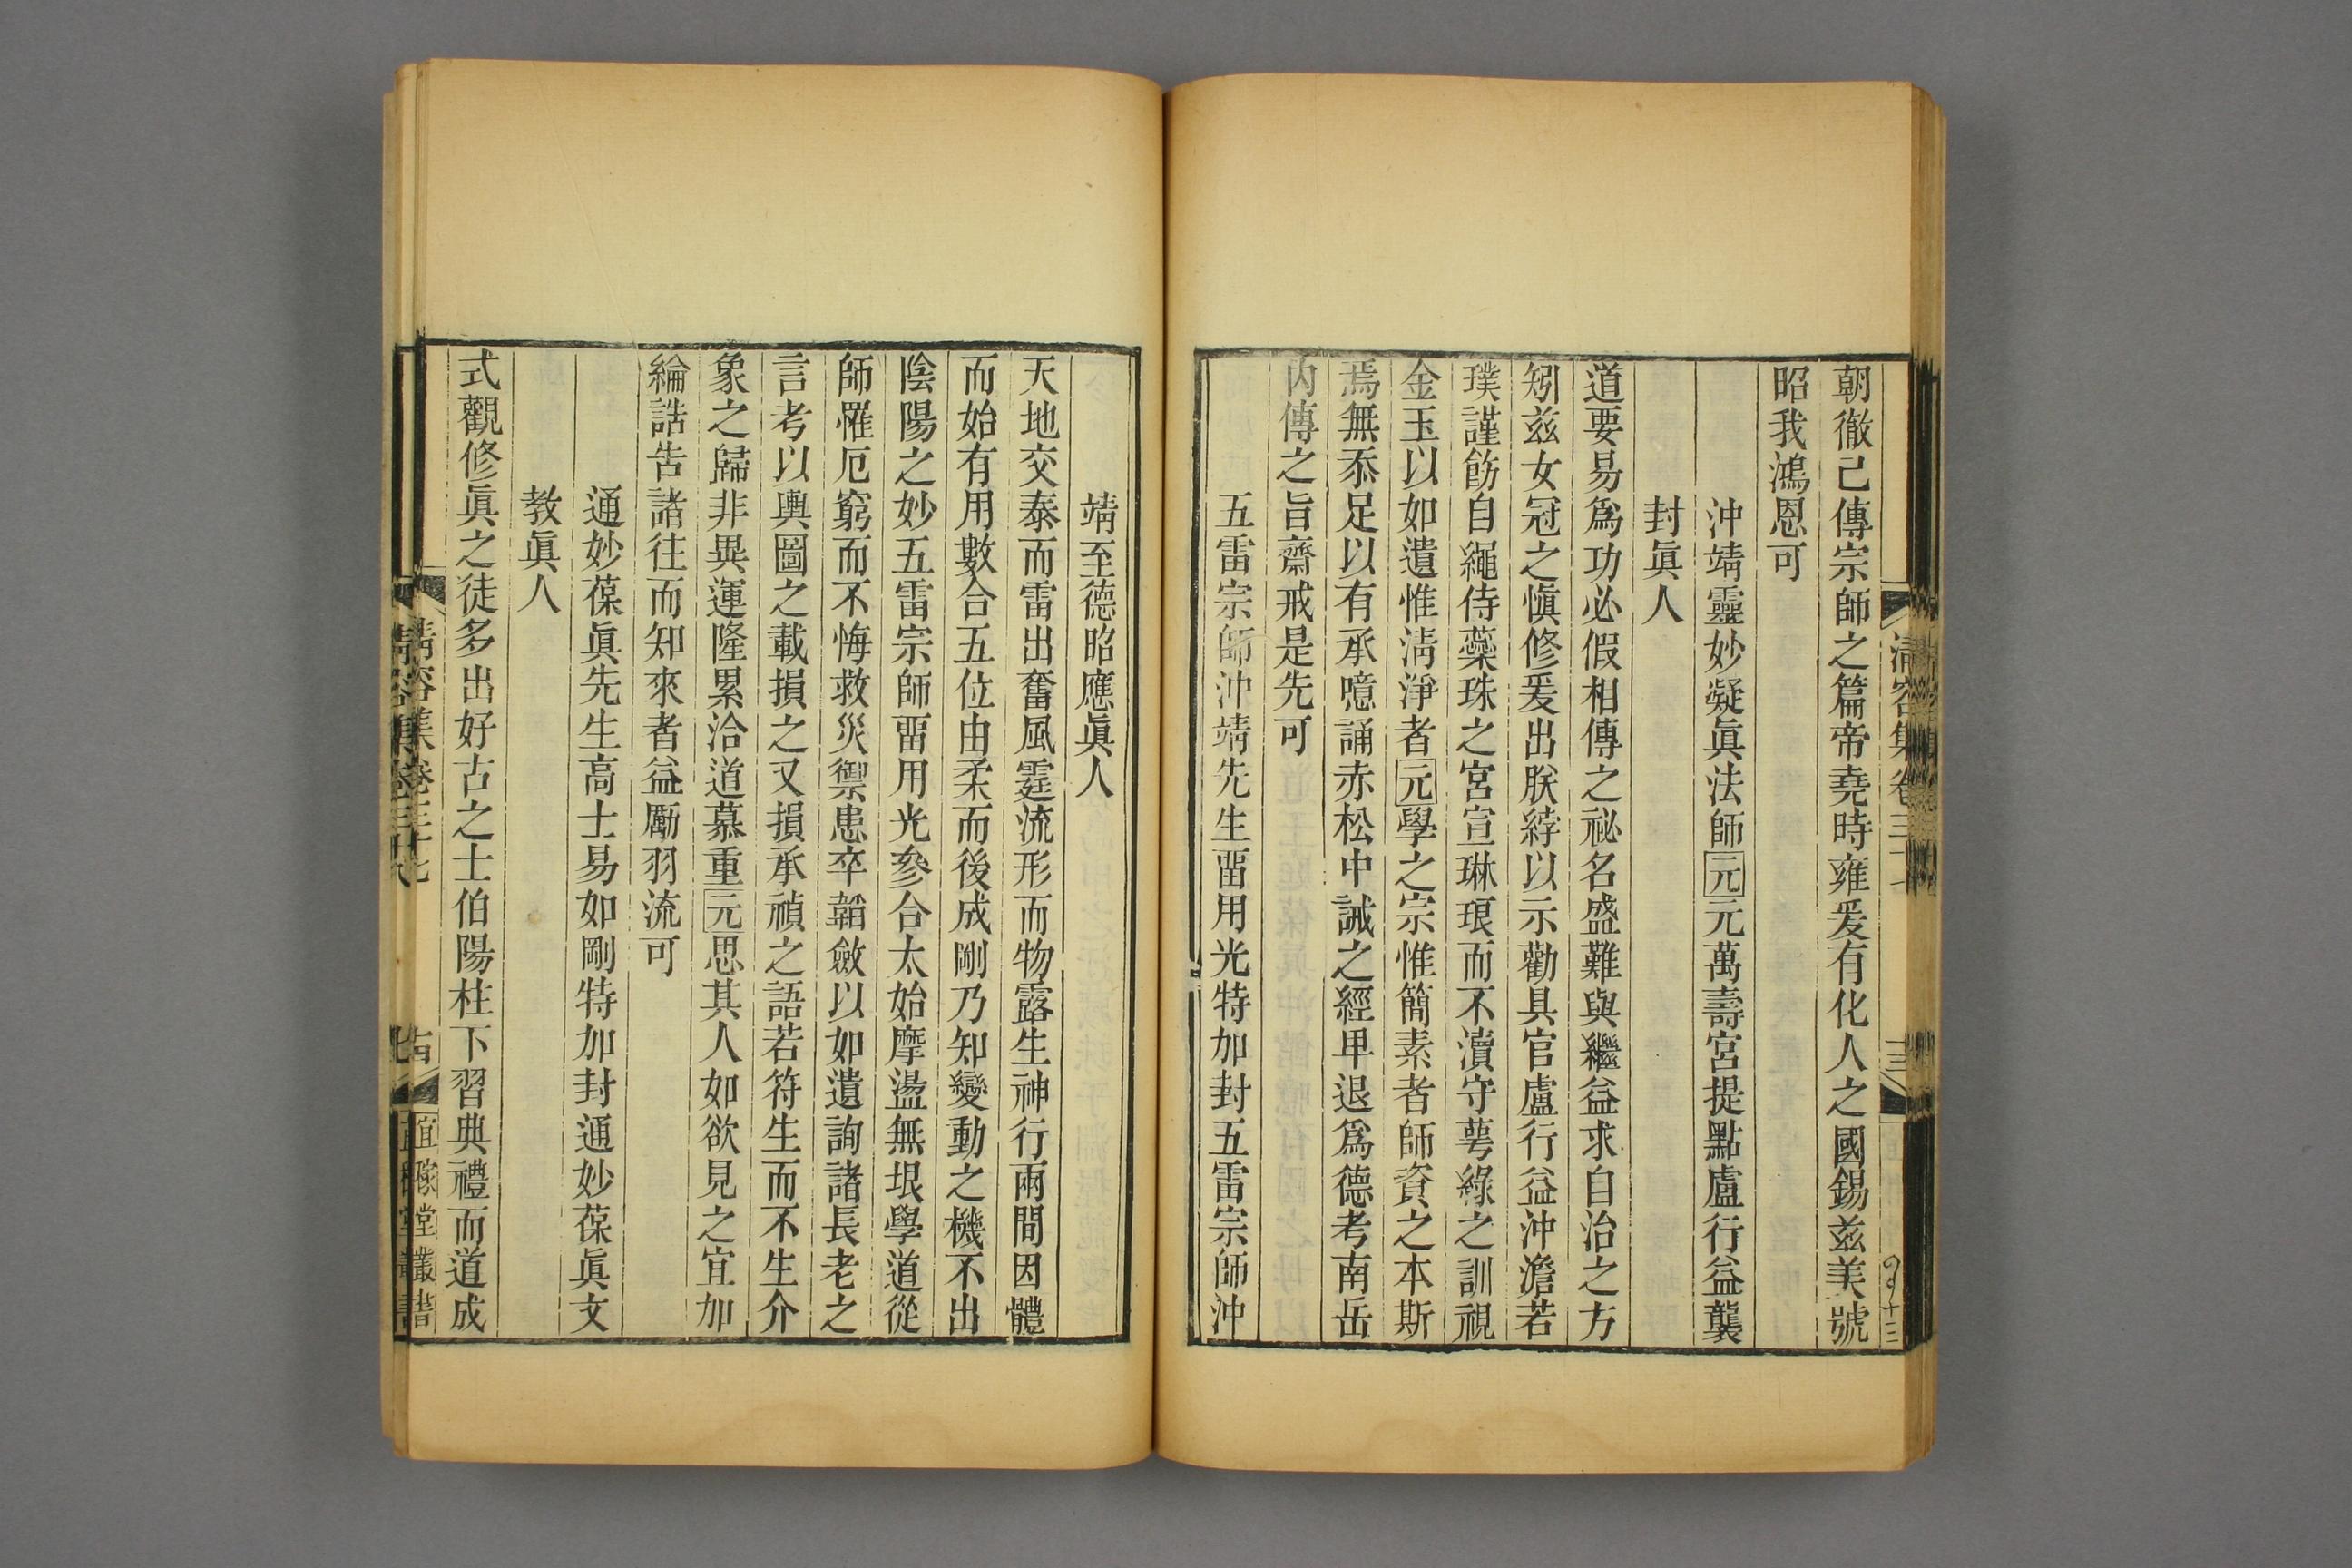 朝徹己傳宗師之篇帝堯時雍爰有化人之國錫兹美號
昭我鴻恩可
沖靖靈妙凝眞法師元元萬壽宮提點盧行益襲
封眞人
道要易爲功必假相傳之祕名盛難與繼益求自治之方
矧兹女冠之愼修爰出朕綍以示勸具官盧行益沖澹若
璞謹飭自繩侍蘂珠之宮宣琳琅而不瀆守萼綠之訓視
金玉以如遺惟淸淨者元學之宗惟簡素者師資之本斯
焉無忝足以有承噫誦赤松中誡之經早退爲德考南岳
内傳之旨齋戒是先可
五雷宗師沖靖先生畱用光特加封五雷宗師沖
靖至德昭應眞人
天地交泰而雷出奮風霆流形而物露生神行兩間因體
而始有用數合五位由柔而後成剛乃知變動之機不出
陰陽之妙五雷宗師畱用光參合太始摩盪無垠學道從
師罹厄窮而不悔救災禦患卒韜斂以如遺詢諸長老之
言考以輿圖之載損之又損承禎之語若符生而不生介
象之歸非異運隆累洽道慕重元思其人如欲見之宜加
綸誥告諸往而知來者益勵羽流可
通妙葆眞先生高士易如剛特加封通妙葆眞文
教眞人
式觀修眞之徒多出好古之士伯陽柱下習典禮而道成
清容集卷三十七
宜稼堂叢書